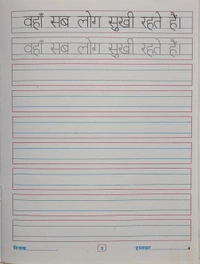 वहाँ सब लोग सुखी रहते हैं।
वहाँ सब लोग सुखी रहते हैं।
दिनांक 3 हस्ताक्षर